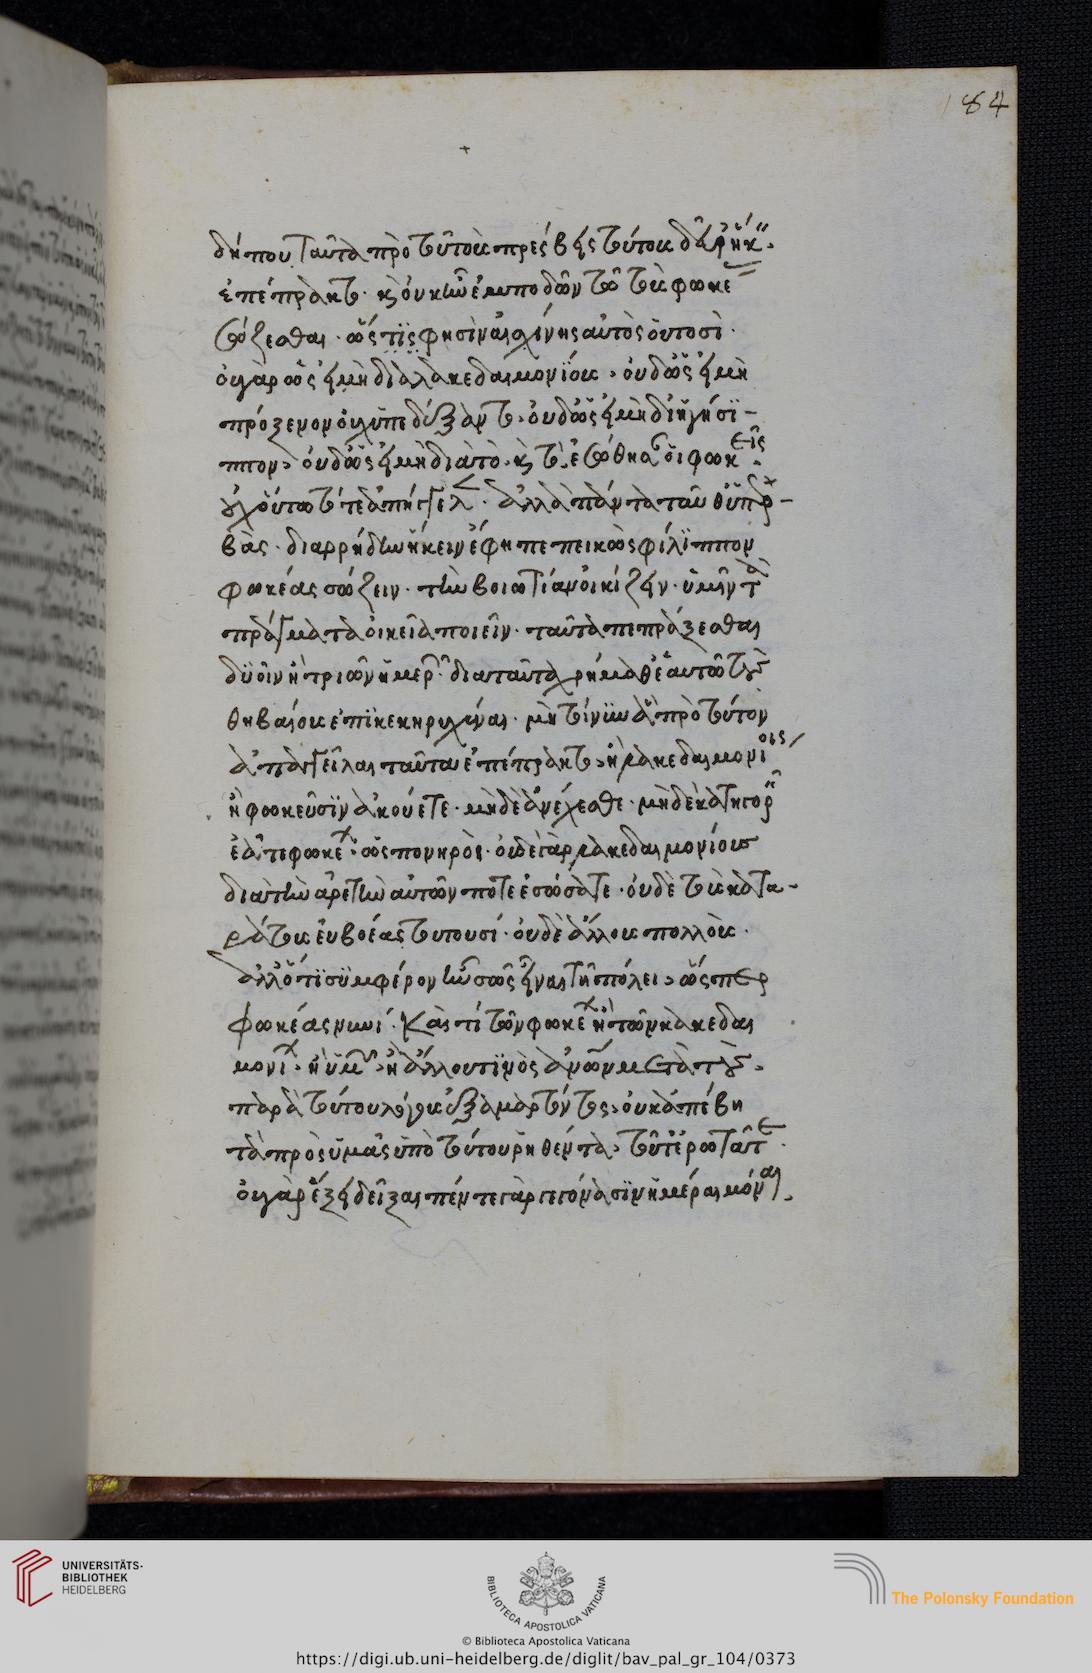 184
δήπου ταῦτα πρὸ τοῦ τοὺς πρέσβεις τούτους δεῦρ' ἥκειν
ἐπέπρακτο· καὶ οὐκ ἦν ἐμποδὼν τῶ τοὺς φωκέας
σώζεσθαι· ὥς τίς φησὶν αἰσχίνης αὐτὸς οὑτοσὶ·
οὐ γὰρ ὡς εἰ μὴ διὰ λακεδαιμονίους, οὐδ' ὡς εἰ μὴ
πρόξενον οὐχ ὑπεδέξαντο, οὐδ' ὡς εἰ μὴ δι' ἡγήσιπ-
πον, οὐδ' ὡς εἰ μὴ διὰ τὸ καὶ τὸ ἐσώθησαν οἱ φωκεῖς·
οὐχ οὕτω τότε ἀπήγγειλεν· ἀλλὰ πάντα ταῦθ' ὑπερ-
βὰς· διαρρήδην ἥκειν ἔφη πεπεικὼς φίλιππον
φωκέας σώζειν· τὴν βοιωτίαν οἰκίζειν· ὑμῖν τὰ
πράγματα οἰκεῖα ποιεῖν· ταῦτα πεπράξεσθαι
δυοῖν ἢ τριῶν ἡμερῶν· διὰ ταῦτα χρήμαθ' ἑαυτῶ τοὺς
θηβαίους ἐπικεκηρυχέναι· μὴ τοίνυν ἃ πρὸ τοῦ τοῦτον
ἀπαγγεῖλαι ταῦτα ἐπέπρακτο ἢ λακεδαιμονίοις
ἢ φωκεῦσιν ἀκούετε· μηδὲ ἀνέχεσθε· μηδὲ κατηγορεῖν
ἐᾶτε φωκέων ὡς πονηροί· οὐδὲ γὰρ λακεδαιμονίους
διὰ τὴν ἀρετὴν αὐτῶν ποτε ἐσώσατε· οὐδὲ τοὺς κατα-
ράτους εὐβοέας τουτουσί· οὐδὲ ἄλλους πολλούς·
ἀλλ' ὅτι συμφέρον ἦν σῶς εἶναι τῇ πόλει, ὥσπερ
φωκέας νυνί· Καὶ τί τῶν φωκέων ἢ τῶν λακεδαι
μονίων, ἢ ὑμῶν, ἢ ἄλλου τινὸς ἀνθρώπων μετὰ τοὺς
παρὰ τούτου λόγους ἐξαμαρτόντος, οὐκ ἀπέβη
τὰ πρὸς ὑμᾶς ὑπὸ τούτου ῥηθέντα, τοῦτ' ἐρωτᾶτε·
οὐ γὰρ ἕξει δεῖξαι πέντε γὰρ γεγόνασιν ἡμέραι μόναι.
UNIVERSITÄTS-
BIBLIOTHEK
HEIDELBERG
BIBLIOTECA APOSTOLICA VATICANA
The Polonsky Foundation
© Biblioteca Apostolica Vaticana
https://digi.ub.uni-heidelberg.de/diglit/bav_pal_gr_104/0373